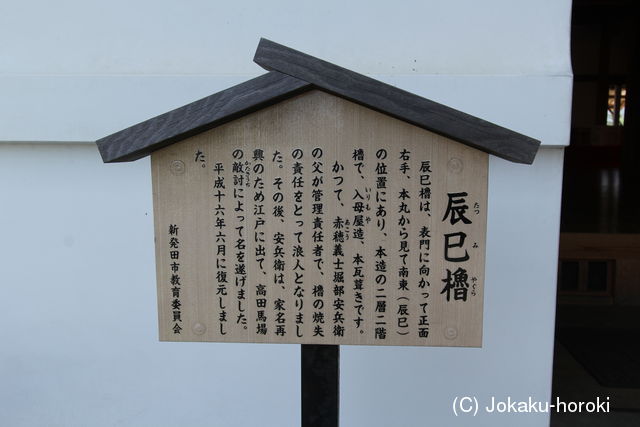 辰巳櫓
たつみやぐら
辰巳櫓は、表門に向かって正面
右手、本丸から見て南東（辰巳）
の位置にあり、木造の二層二階
櫓で、入母屋造、本瓦葺きです。
いりもや
かつて、赤穂義士堀部安兵衛
あこう
の父が管理責任者で、櫓の焼失
の責任をとって浪人となりまし
た。その後、安兵衛は、家名再
興のため江戸に出て、高田馬場
の敵討によって名を遂げました。
かたきうち
平成十六年六月に復元しまし
た。
新発田市教育委員会
(C) Jokaku-horoki